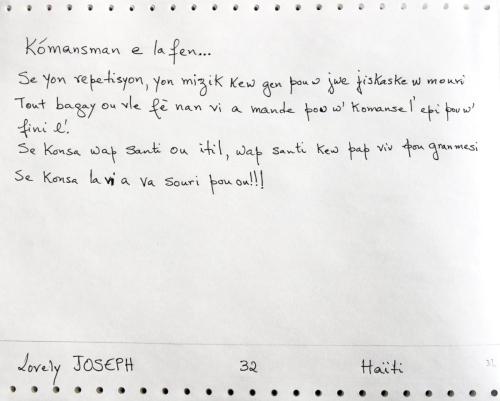 Kómansman e la fen...
Se yon repetisyon, yon mizik kew gen pou w jwe jiskaske w mouri
Tout bagay ou vle fè nan vi a mande pou w' Komanse l' epi pou w'
fini l'.
Se Konsa wap Santi ou itil, wap santi kew pap viv pou granmesi
Se Konsa la vi a va Souri pou ou!!!
Lovely JOSEPH 32 Haïti 32